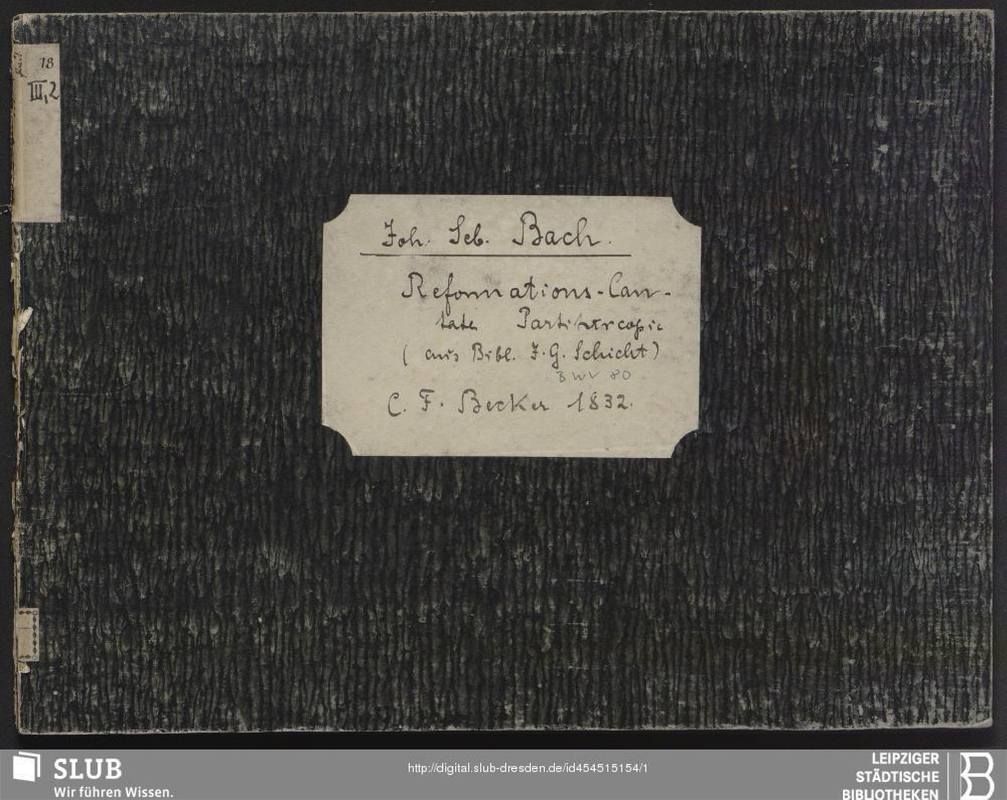 18
III,2
Joh. Seb. Bach.
Reformations-Can-
tate Partiturcopie
(aus Bibl. J. G. Schicht)
BWV 80
C. F. Becker 1832.
SLUB
Wir führen Wissen.
http://digital.slub-dresden.de/id454515154/1
LEIPZIGER
STÄDTISCHE
BIBLIOTHEKEN